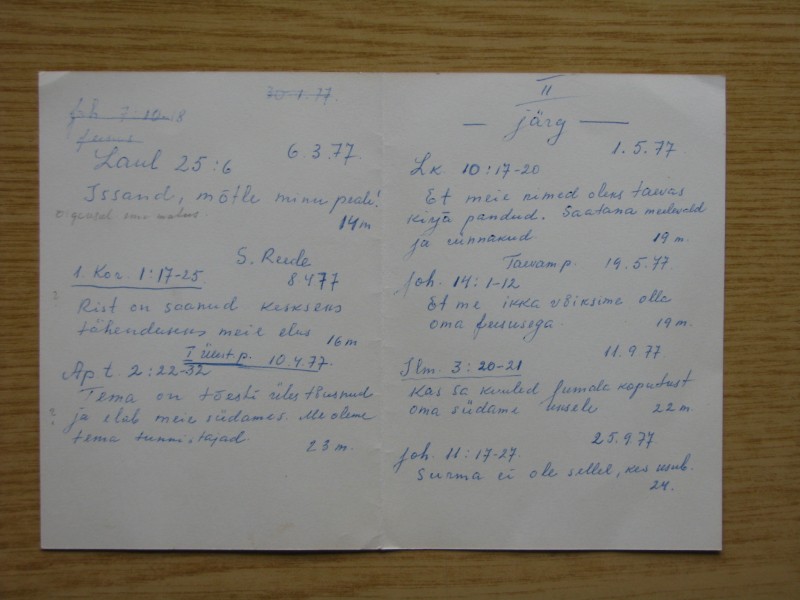 30.1.77.
Joh 7:10-18
Jeesus
Laul 25:6 6.3.77.
Issand, mõtle minu peale!
14 m
S. Reede
1. Kor. 1:17-25. 8 4 77
Rist on saanud keskseks
tähenduseks meie elus
16 m
I ülest.p. 10.4.77.
Ap t. 2:22-32
Tema on tõesti üles tõusnud
ja elab meie südames. Me oleme
tema tunnistajad.
23 m.
II
— järg —
1.5.77.
Lk 10:17-20
Et meie nimed oleks taevas
kirja pandud. Saatana
ja rünnakud. 19 m.
Taevamp. 19.5.77
Joh. 14:1-12
Et me ikka võiksime olla
oma Jeesusega. 19 m.
11.9.77
Ilm. 3:20-21
Kas Sa kuuled Jumala koputust
oma südame uksele 22 m.
25.9.77
Joh. 11:17-27.
Surma ei ole sellel, kes usub.
24.